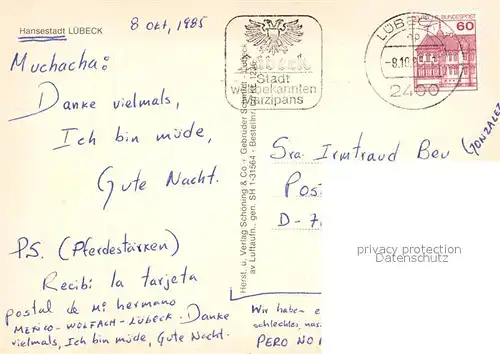 Hansestadt LÜBECK
8 Okt, 1985
Muchacha:
Danke vielmals,
Ich bin müde,
Gute Nacht.
P.S. (Pferdestärken)
Recibí la tarjeta
postal de mi hermano
MEXICO-WOLFACH-LÜBECK. Danke
vielmals, Ich bin müde, Gute Nacht.
Lübeck
Stadt
weltbekannten
Marzipans
LÜBECK
-8.10.8
2400
BUNDESPOST
60
Herst. u. Verlag Schöning & Co + Gebrüder Schmidt · Lübeck
av Luftaufn., gen. SH 1-31564 · Bestellnr.
Sra. Irmtraud Beu
(GONZALEZ
Pos
D-7
privacy protection
Datenschutz
Wir haben e
schlechtes, nas
PERO NO